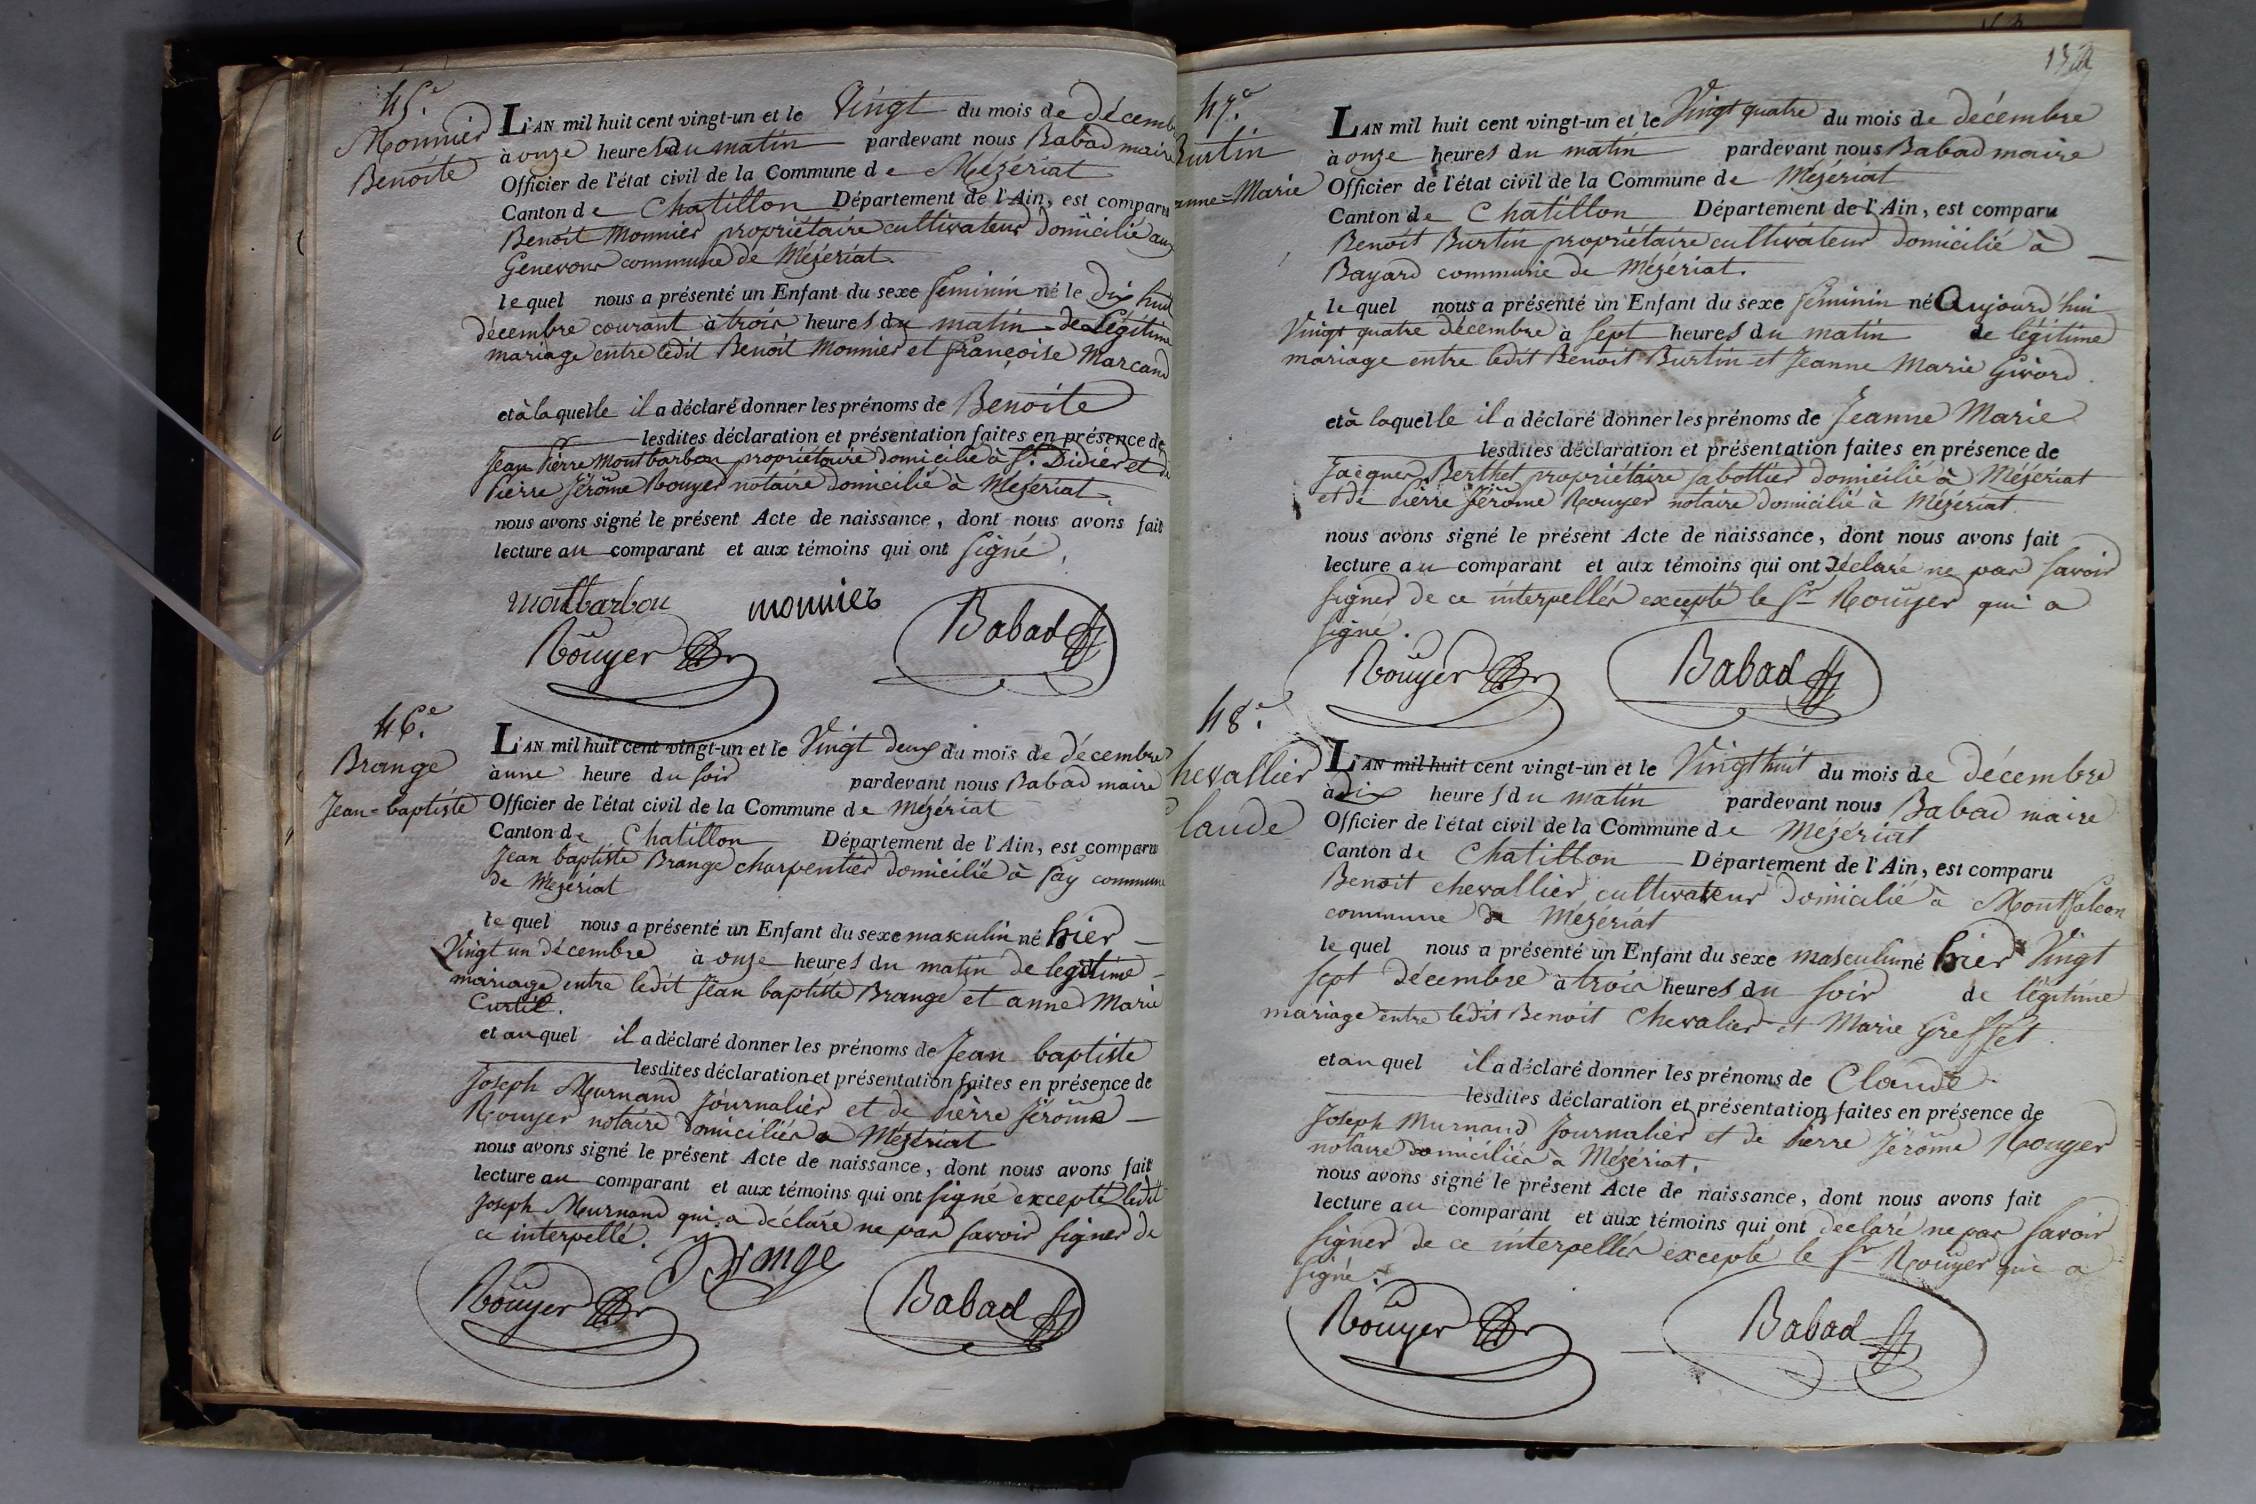 45.e
Monnier
Benoite
L'AN mil huit cent vingt-un et le Vingt du mois de décemb
à onze heures du matin pardevant nous Babad maire
Officier de l'état civil de la Commune de Mézériat
Canton de Chatillon Département de l'Ain, est comparu
Benoit Monnier propriétaire cultivateur domicilié aux
Genevons commune de Mézériat.
lequel nous a présenté un Enfant du sexe féminin né le dix huit
décembre courant à trois heures du matin de légitime
mariage entre ledit Benoit Monnier et françoise Marcand
et à laquelle il a déclaré donner les prénoms de Benoite
lesdites déclaration et présentation faites en présence de
Jean Pierre Montbarbon propriétaire domicilié à St. Didier et de
Pierre Jérôme Rouyer notaire domicilié à Mézériat.
nous avons signé le présent Acte de naissance, dont nous avons fait
lecture au comparant et aux témoins qui ont signé.
montbarbon monnier Babad
Rouyer
46.e
Brange
Jean=baptiste
L'AN mil huit cent vingt-un et le Vingt deux du mois de décembre
à une heure du soir pardevant nous Babad maire
Officier de l'état civil de la Commune de Mézériat
Canton de Chatillon Département de l'Ain, est comparu
Jean baptiste Brange charpentier domicilié à fay commune
de Mézériat
lequel nous a présenté un Enfant du sexe masculin né hier
Vingt un décembre à onze heures du matin de legitime
mariage entre ledit Jean baptiste Brange et anne Marie
Curtil.
et auquel il a déclaré donner les prénoms de Jean baptiste
lesdites déclaration et présentation faites en présence de
Joseph Murnand Journalier et de Pierre Jérôme
Rouyer notaire domiciliés a Mézériat
nous avons signé le présent Acte de naissance, dont nous avons fait
lecture au comparant et aux témoins qui ont signé excepté ledit
Joseph Murnand qui a déclaré ne pas savoir signer de
ce interpellé.
Brange
Rouyer Babad
47.e
Burtin
anne=Marie
L'AN mil huit cent vingt-un et le Vingt quatre du mois de décembre
à onze heures du matin pardevant nous Babad maire
Officier de l'état civil de la Commune de Mézériat
Canton de Chatillon Département de l'Ain, est comparu
Benoit Burtin propriétaire cultivateur domicilié à
Bayard commune de Mézériat.
lequel nous a présenté un Enfant du sexe féminin né Aujourd'hui
Vingt quatre décembre à sept heures du matin de légitime
mariage entre ledit Benoit Burtin et Jeanne Marie Givord.
et à laquelle il a déclaré donner les prénoms de Jeanne Marie
lesdites déclaration et présentation faites en présence de
Jacques Berthet propriétaire sabottier domicilié à Mézériat
et de Pierre Jérôme Rouyer notaire domicilié à Mézériat.
nous avons signé le présent Acte de naissance, dont nous avons fait
lecture au comparant et aux témoins qui ont Déclaré ne pas savoir
signer de ce interpellés excepté le Sr Rouyer qui a
signé.
Rouyer Babad
48.e
hevallier
laude
L'AN mil huit cent vingt-un et le Vingt huit du mois de décembre
à dix heures du matin pardevant nous Babad maire
Officier de l'état civil de la Commune de Mézériat
Canton de Chatillon Département de l'Ain, est comparu
Benoit chevallier cultivateur domicilié à Montfalcon
commune de Mézériat
lequel nous a présenté un Enfant du sexe masculin né hier Vingt
sept décembre à trois heures du soir de légitime
mariage entre ledit Benoit Chevalier et Marie Greffet.
et auquel il a déclaré donner les prénoms de Claude.
lesdites déclaration et présentation faites en présence de
Joseph Murnand Journalier et de Pierre Jérôme Rouyer
notaire domiciliés à Mézériat.
nous avons signé le présent Acte de naissance, dont nous avons fait
lecture au comparant et aux témoins qui ont déclaré ne pas savoir
signer de ce interpellés excepté le Sr Rouyer qui a
signé.
Rouyer Babad